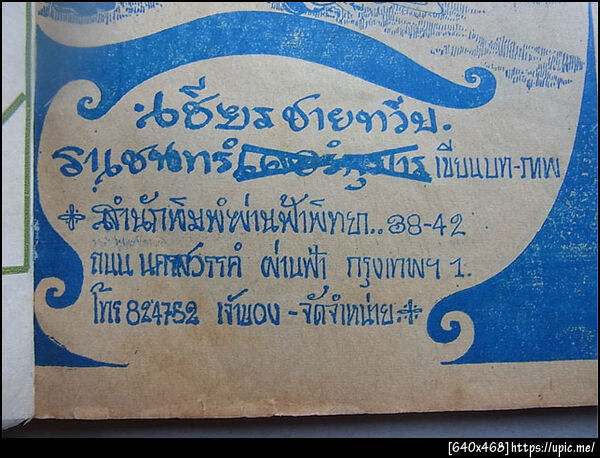 :เชียร ชายทวีป.
ราเชนทร์ เขียนบท-ภาพ
สำนักพิมพ์ผ่านฟ้าพิทยา..38-42
ถนน นครสวรรค์ ผ่านฟ้า กรุงเทพฯ 1.
โทร 824752 เจ้าของ-จัดจำหน่าย
[640x468]https://upic.me/